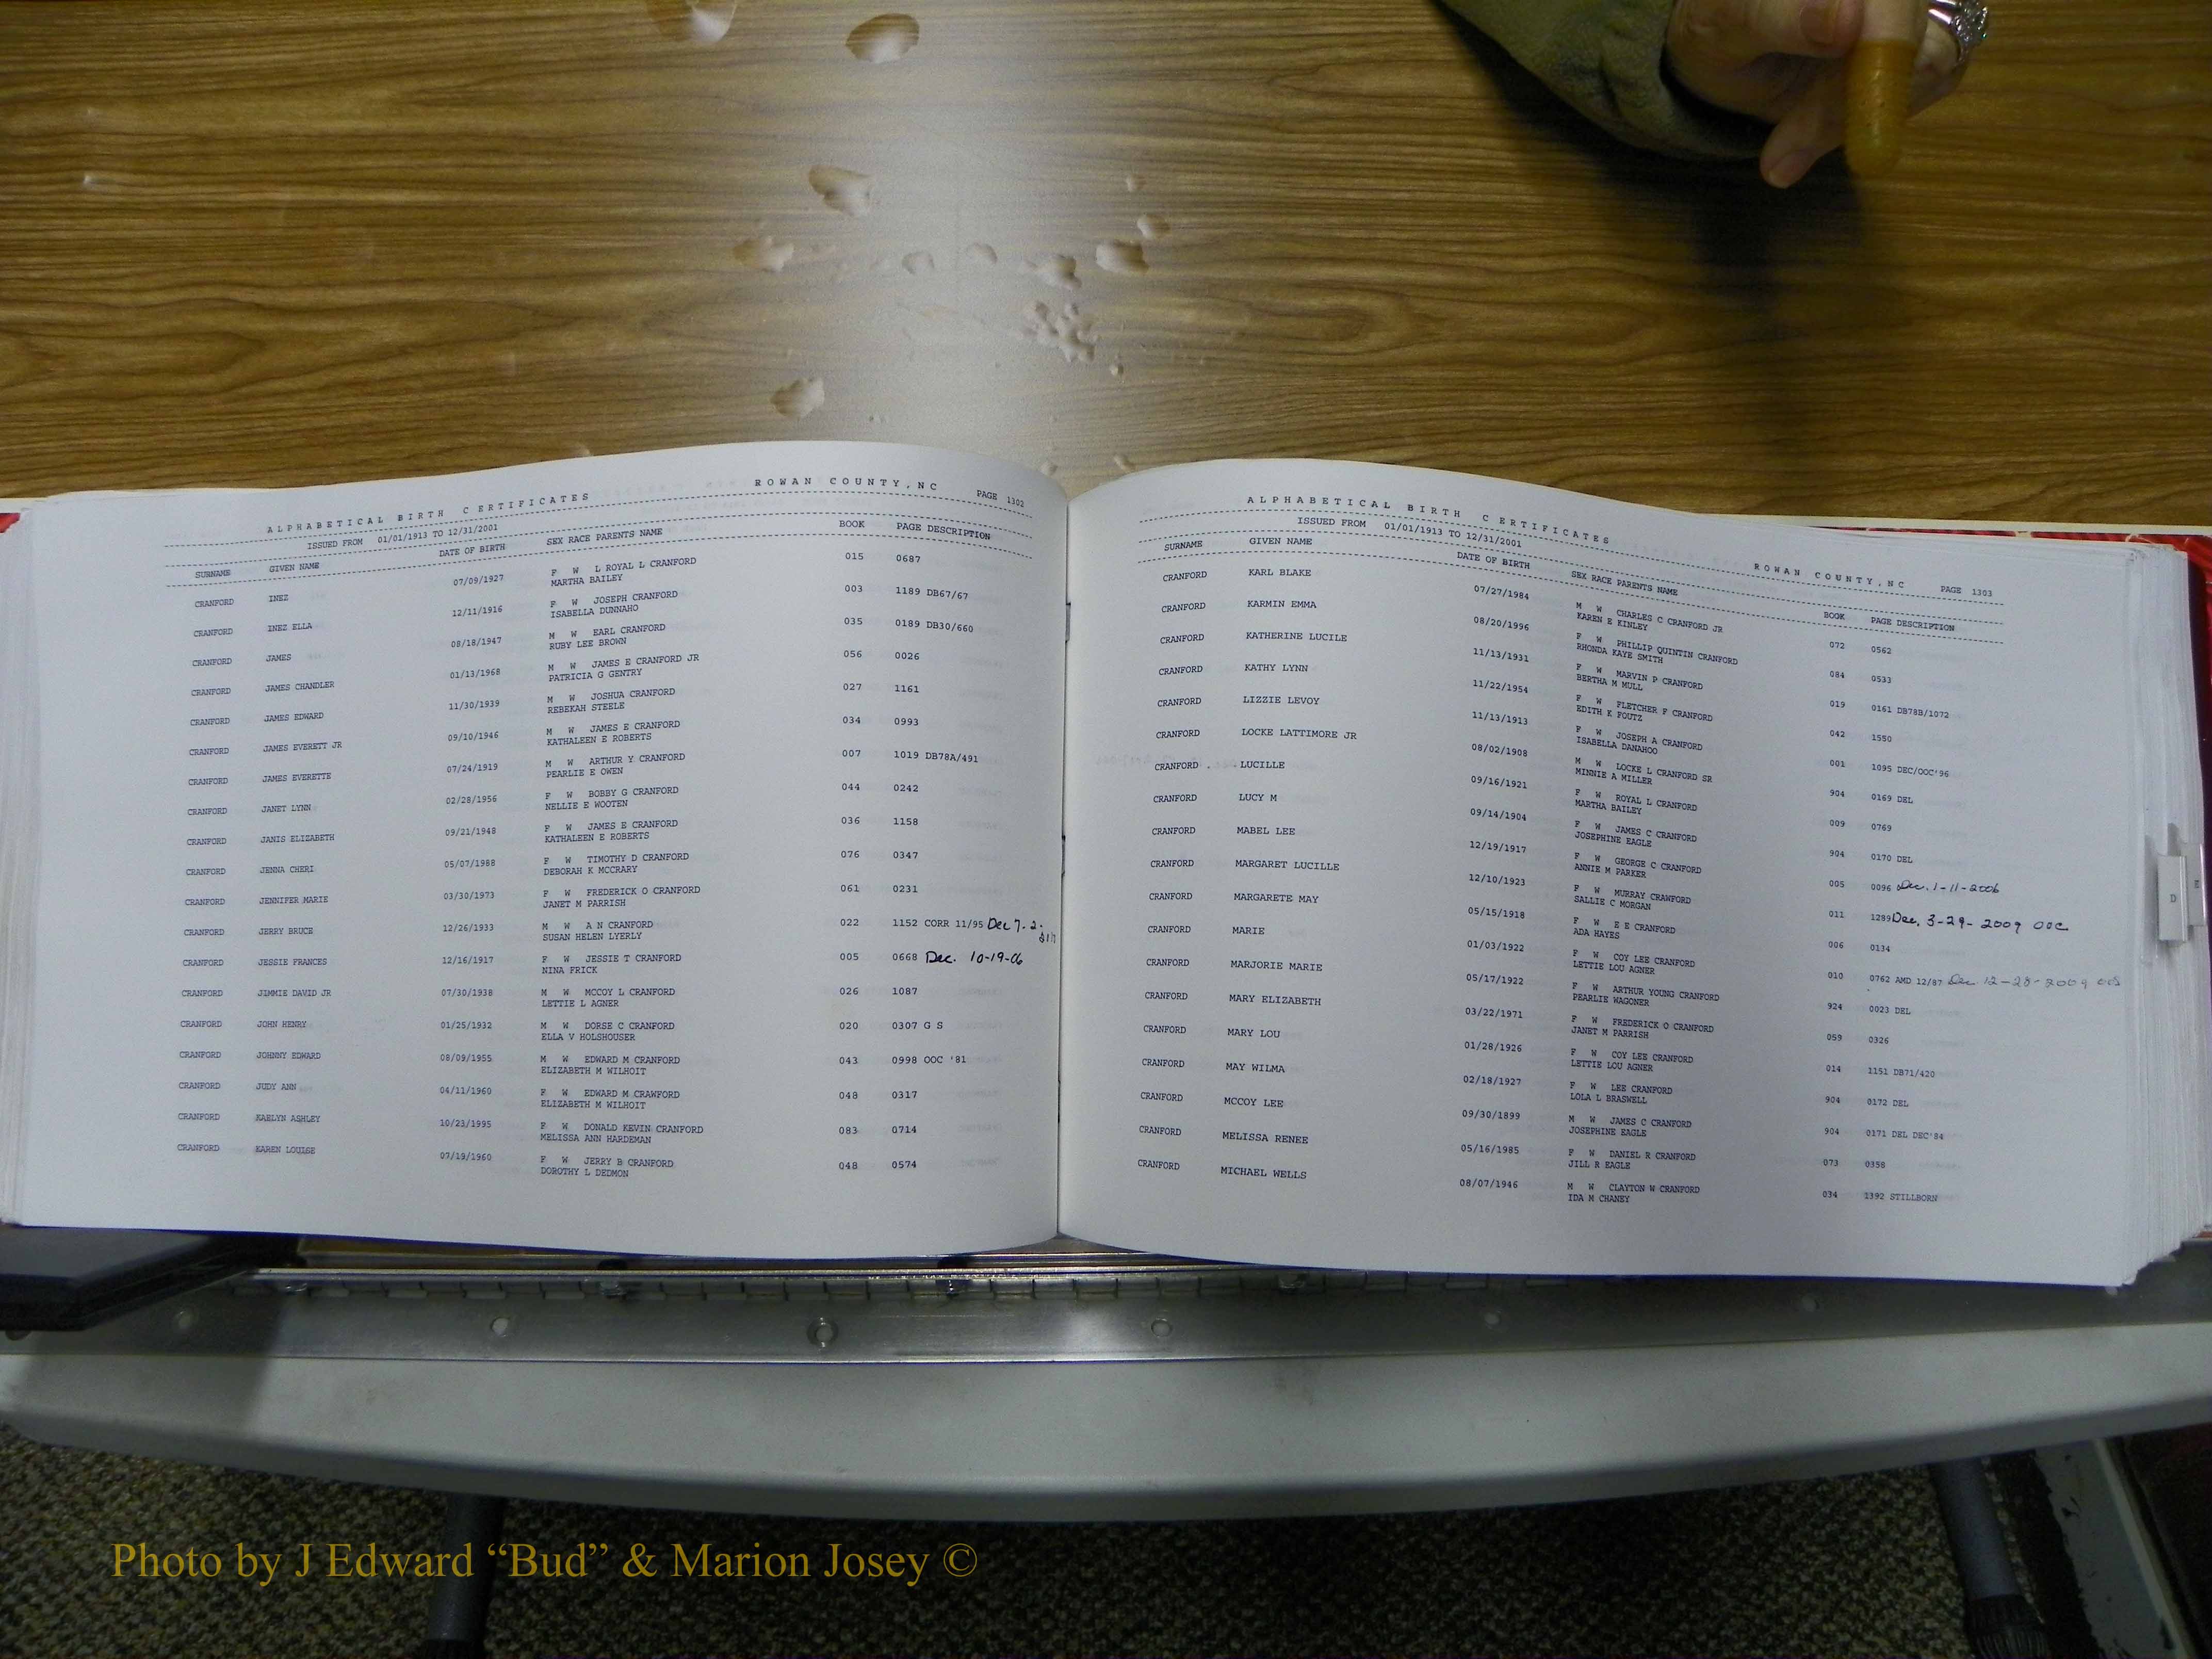 ALPHABETICAL BIRTH CERTIFICATES ROWAN COUNTY, NC PAGE 1302
ISSUED FROM 01/01/1913 TO 12/31/2001
SURNAME GIVEN NAME DATE OF BIRTH SEX RACE PARENTS NAME BOOK PAGE DESCRIPTION
CRANFORD INEZ 07/09/1927 F W L ROYAL L CRANFORD 015 0687
MARTHA BAILEY
CRANFORD INEZ ELLA 12/11/1916 F W JOSEPH CRANFORD 003 1189 DB67/67
ISABELLA DUNNAHO
CRANFORD JAMES 08/18/1947 M W EARL CRANFORD 035 0189 DB30/660
RUBY LEE BROWN
CRANFORD JAMES CHANDLER 01/13/1968 M W JAMES E CRANFORD JR 056 0026
PATRICIA G GENTRY
CRANFORD JAMES EDWARD 11/30/1939 M W JOSHUA CRANFORD 027 1161
REBEKAH STEELE
CRANFORD JAMES EVERETT JR 09/10/1946 M W JAMES E CRANFORD 034 0993
KATHALEEN E ROBERTS
CRANFORD JAMES EVERETTE 07/24/1919 M W ARTHUR Y CRANFORD 007 1019 DB78A/491
PEARLIE E OWEN
CRANFORD JANET LYNN 02/28/1956 F W BOBBY G CRANFORD 044 0242
NELLIE E WOOTEN
CRANFORD JANIS ELIZABETH 09/21/1948 F W JAMES E CRANFORD 036 1158
KATHALEEN E ROBERTS
CRANFORD JENNA CHERI 05/07/1988 F W TIMOTHY D CRANFORD 076 0347
DEBORAH K MCCRARY
CRANFORD JENNIFER MARIE 03/30/1973 F W FREDERICK O CRANFORD 061 0231
JANET M PARRISH
CRANFORD JERRY BRUCE 12/26/1933 M W A N CRANFORD 022 1152 CORR 11/95 Dec 7.2.
SUSAN HELEN LYERLY
CRANFORD JESSIE FRANCES 12/16/1917 F W JESSIE T CRANFORD 005 0668 Dec. 10-19-06
NINA FRICK
CRANFORD JIMMIE DAVID JR 07/30/1938 M W MCCOY L CRANFORD 026 1087
LETTIE L AGNER
CRANFORD JOHN HENRY 01/25/1932 M W DORSE C CRANFORD 020 0307 G S
ELLA V HOLSHOUSER
CRANFORD JOHNNY EDWARD 08/09/1955 M W EDWARD M CRANFORD 043 0998 OOC '81
ELIZABETH M WILHOIT
CRANFORD JUDY ANN 04/11/1960 F W EDWARD M CRAWFORD 048 0317
ELIZABETH M WILHOIT
CRANFORD KAELYN ASHLEY 10/23/1995 F W DONALD KEVIN CRANFORD 083 0714
MELISSA ANN HARDEMAN
CRANFORD KAREN LOUISE 07/19/1960 F W JERRY B CRANFORD 048 0574
DOROTHY L DEDMON
ALPHABETICAL BIRTH CERTIFICATES ROWAN COUNTY, NC PAGE 1303
ISSUED FROM 01/01/1913 TO 12/31/2001
SURNAME GIVEN NAME DATE OF BIRTH SEX RACE PARENTS NAME BOOK PAGE DESCRIPTION
CRANFORD KARL BLAKE 07/27/1984 M W CHARLES C CRANFORD JR 072 0562
KAREN E KINLEY
CRANFORD KARMIN EMMA 08/20/1996 F W PHILLIP QUINTIN CRANFORD 084 0533
RHONDA KAYE SMITH
CRANFORD KATHERINE LUCILE 11/13/1931 F W MARVIN P CRANFORD 019 0161 DB78B/1072
BERTHA M MULL
CRANFORD KATHY LYNN 11/22/1954 F W FLETCHER F CRANFORD 042 1550
EDITH K FOUTZ
CRANFORD LIZZIE LEVOY 11/13/1913 F W JOSEPH A CRANFORD 001 1095 DEC/OOC'96
ISABELLA DANAHOO
CRANFORD LOCKE LATTIMORE JR 08/02/1908 M W LOCKE L CRANFORD SR 904 0169 DEL
MINNIE A MILLER
CRANFORD LUCILLE 09/16/1921 F W ROYAL L CRANFORD 009 0769
MARTHA BAILEY
CRANFORD LUCY M 09/14/1904 F W JAMES C CRANFORD 904 0170 DEL
JOSEPHINE EAGLE
CRANFORD MABEL LEE 12/19/1917 F W GEORGE C CRANFORD 005 0096 Dec. 1-11-2006
ANNIE M PARKER
CRANFORD MARGARET LUCILLE 12/10/1923 F W MURRAY CRAWFORD 011 1289 Dec. 3-29-2009 OOC
SALLIE C MORGAN
CRANFORD MARGARETE MAY 05/15/1918 F W E E CRANFORD 006 0134
ADA HAYES
CRANFORD MARIE 01/03/1922 F W COY LEE CRANFORD 010 0762 AMD 12/87 Dec 12-28-2009 OOS
LETTIE LOU AGNER
CRANFORD MARJORIE MARIE 05/17/1922 F W ARTHUR YOUNG CRANFORD 924 0023 DEL
PEARLIE WAGONER
CRANFORD MARY ELIZABETH 03/22/1971 F W FREDERICK O CRANFORD 059 0326
JANET M PARRISH
CRANFORD MARY LOU 01/28/1926 F W COY LEE CRANFORD 014 1151 DB71/420
LETTIE LOU AGNER
CRANFORD MAY WILMA 02/18/1927 F W LEE CRANFORD 904 0172 DEL
LOLA L BRASWELL
CRANFORD MCCOY LEE 09/30/1899 M W JAMES C CRANFORD 904 0171 DEL DEC'84
JOSEPHINE EAGLE
CRANFORD MELISSA RENEE 05/16/1985 F W DANIEL R CRANFORD 073 0358
JILL R EAGLE
CRANFORD MICHAEL WELLS 08/07/1946 M W CLAYTON W CRANFORD 034 1392 STILLBORN
IDA M CHANEY
D
Photo by J Edward “Bud” & Marion Josey ©